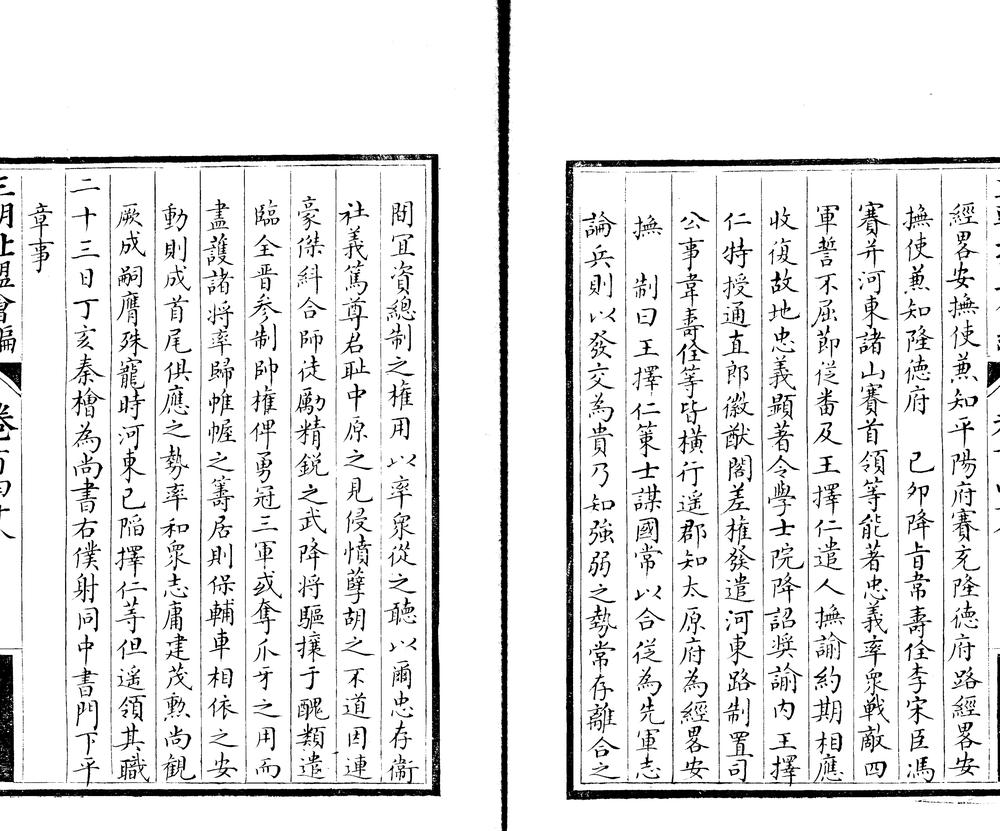 經畧安撫使蒹知平陽府賽充隆德府路經畧安
撫使蒹知隆德府　己卯降㫖常壽佺李宋臣馮
賽并河東諸山賽首領等能著忠義率衆戰敵四
軍誓不屈節從畨及王擇仁遣人撫諭約期相應
收復故地忠義顯著令學士院降詔奨諭内王擇
仁特授通直郎徽猷閣差權發遣河東路制置司
公事韋壽佺等皆橫行遥郡知太原府為經畧安
撫　制曰王擇仁策士謀國常以合從為先軍志
論兵則以發交為貴乃知強弱之勢常存離合之
間冝資總制之權用以率衆從之聽以爾忠存衛
社義篤尊君耻中原之見侵憤孽胡之不道因連
豪傑糾合師徒勵精銳之武降将驅攘于醜類遣
臨全晋参制帥權俾勇冠三軍或奪爪牙之用而
盡護諸将率歸帷幄之籌居則保輔車相依之安
動則成首尾俱應之勢率和衆志庸建茂勲尚観
厥成嗣膺殊寵時河東已陷擇仁等但遥領其職
二十三日丁亥秦檜為尚書右僕射同中書門下平
章事
三朝北盟會編　卷一百四十八